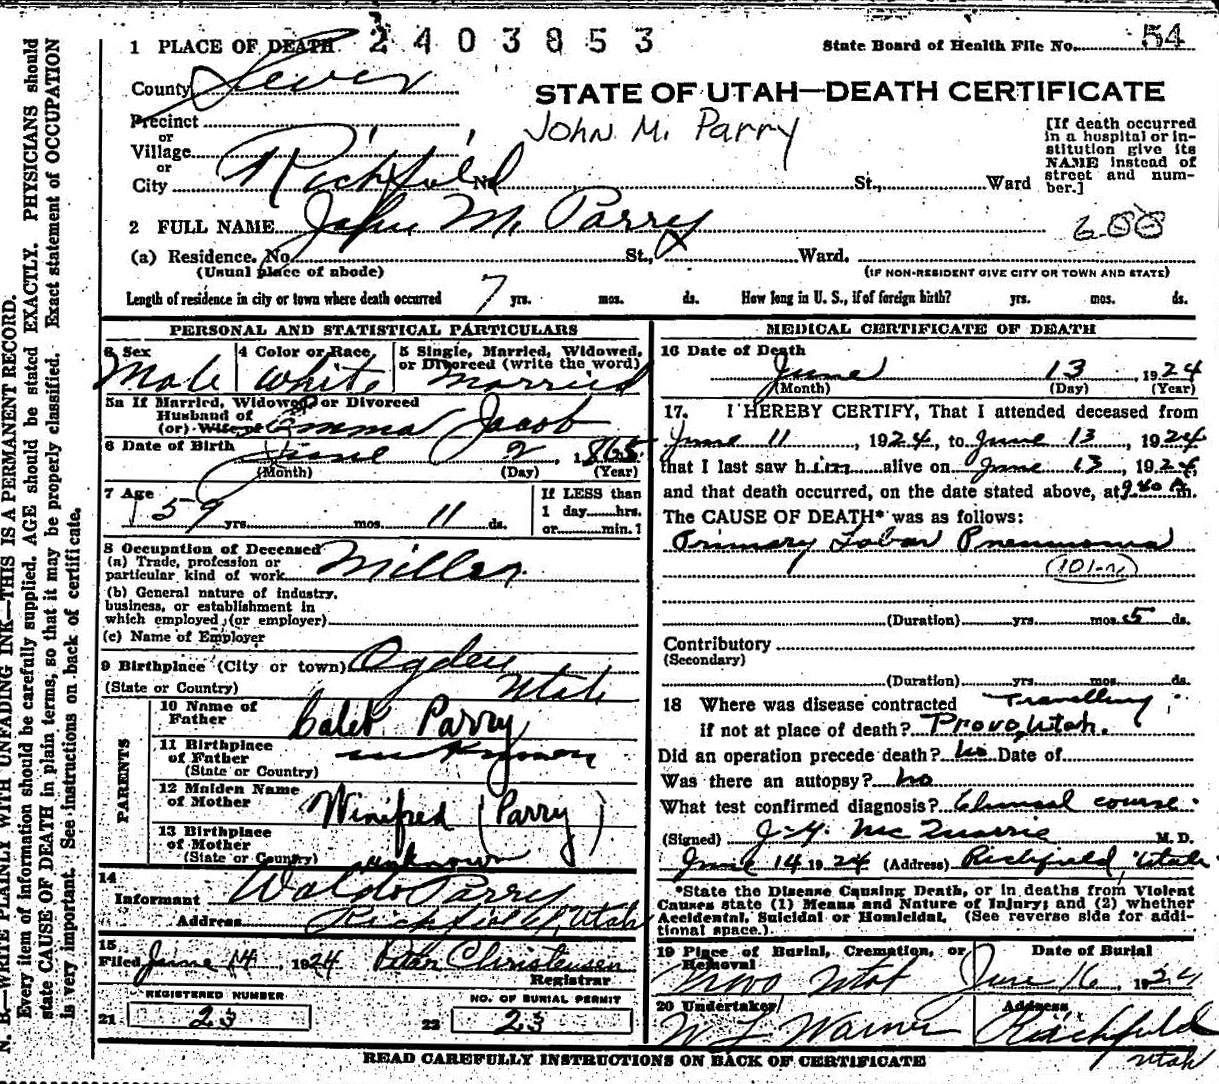 1 PLACE OF DEATH 2403853 State Board of Health File No. 54
County Sevier
STATE OF UTAH—DEATH CERTIFICATE
Precinct
John M. Parry
or
Village
or
City Richfield No. St., Ward
[If death occurred
in a hospital or in-
stitution give its
NAME instead of
street and num-
ber.]
2 FULL NAME John M. Parry
(a) Residence. No. St., Ward.
(Usual place of abode) (IF NON-RESIDENT GIVE CITY OR TOWN AND STATE)
Length of residence in city or town where death occurred 7 yrs. mos. ds. How long in U. S., if of foreign birth? yrs. mos. ds.
PERSONAL AND STATISTICAL PARTICULARS
3 Sex
Male
4 Color or Race
White
5 Single, Married, Widowed,
or Divorced (write the word)
Married
5a If Married, Widowed or Divorced
Husband of
(or) Wife of Emma Jacob
6 Date of Birth June 2, 1865
(Month) (Day) (Year)
7 Age
59 yrs. mos. 11 ds.
If LESS than
1 day hrs.
or min.?
8 Occupation of Deceased
(a) Trade, profession or
particular kind of work Miller
(b) General nature of industry,
business, or establishment in
which employed (or employer)
(c) Name of Employer
9 Birthplace (City or town) Ogden
(State or Country) Utah
PARENTS
10 Name of
Father Caleb Parry
11 Birthplace
of Father unknown
(State or Country)
12 Maiden Name
of Mother Winifred (Parry)
13 Birthplace
of Mother
(State or Country) unknown
14
Informant Waldo Parry
Address Richfield, Utah
15
Filed June 14, 1924 Peter Christensen
Registrar
REGISTERED NUMBER
21 23
NO. OF BURIAL PERMIT
22 23
MEDICAL CERTIFICATE OF DEATH
16 Date of Death
June 13 1924
(Month) (Day) (Year)
17. I HEREBY CERTIFY, That I attended deceased from
June 11, 1924, to June 13, 1924
that I last saw him alive on June 13, 1924,
and that death occurred, on the date stated above, at 9 40 A m.
The CAUSE OF DEATH* was as follows:
Primary Lobar Pneumonia
(Duration) yrs. mos. 5 ds.
Contributory
(Secondary)
(Duration) yrs. mos. ds.
18 Where was disease contracted Travelling;
if not at place of death? Provo, Utah.
Did an operation precede death? No Date of
Was there an autopsy? No
What test confirmed diagnosis? Clinical course.
(Signed) J. G. McQuarrie M. D.
June 14 1924 (Address) Richfield, Utah
*State the Disease Causing Death, or in deaths from Violent
Causes state (1) Means and Nature of Injury; and (2) whether
Accidental, Suicidal or Homicidal. (See reverse side for addi-
tional space.)
19 Place of Burial, Cremation, or
Removal
Provo Utah
Date of Burial
June 16, 1924
20 Undertaker
W L Warner
Address
Richfield
Utah
READ CAREFULLY INSTRUCTIONS ON BACK OF CERTIFICATE
N. B.—WRITE PLAINLY WITH UNFADING INK—THIS IS A PERMANENT RECORD.
Every item of information should be carefully supplied. AGE should be stated EXACTLY. PHYSICIANS should
state CAUSE OF DEATH in plain terms, so that it may be properly classified. Exact statement of OCCUPATION
is very important. See instructions on back of certificate.